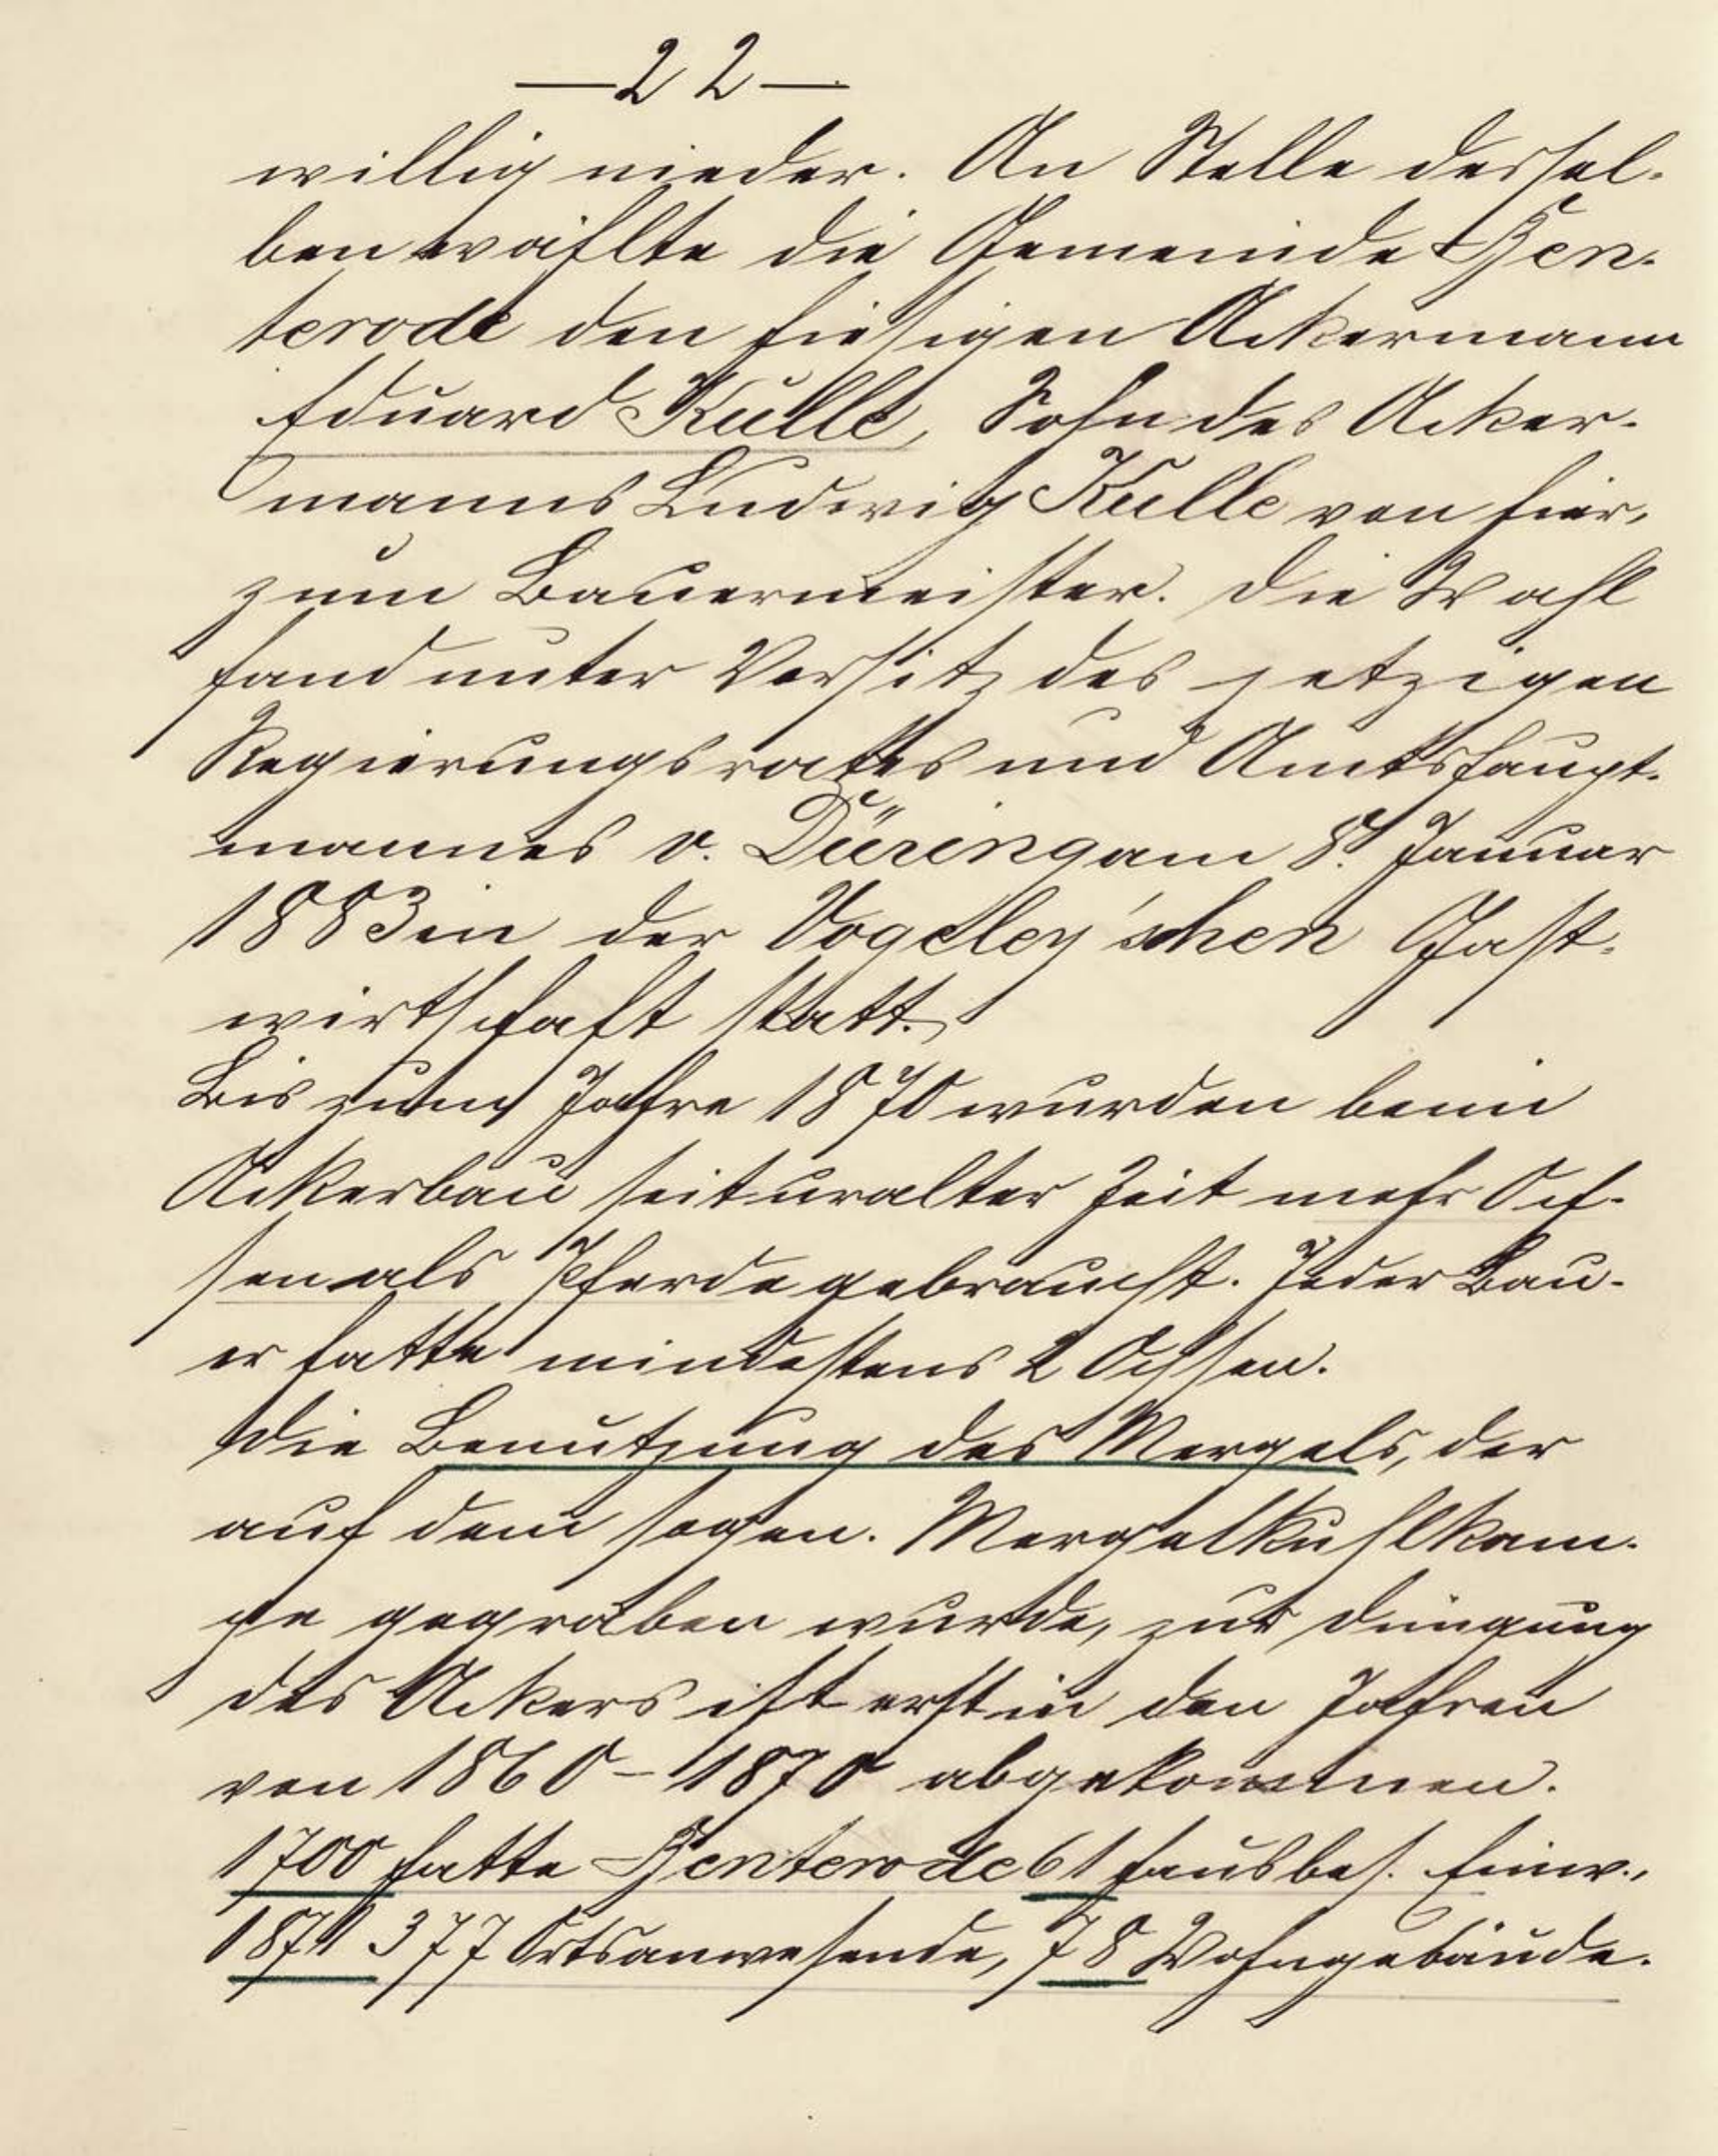 —22—
willig nieder. An Stelle dessel-
ben wählte die Gemeinde Gen-
terode den hiesigen Ackermann
Eduard Kulle, Sohn des Acker-
manns Ludwig Kulle von hier,
zum Bauermeister. Die Wahl
fand unter Vorsitz des jetzigen
Regierungsrathes und Amtshaupt-
mannes v. Düring am 8. Januar
1883 in der Vogeley'schen Gast-
wirthschaft statt.
Bis zum Jahre 1870 wurden beim
Ackerbau seit uralter Zeit mehr Och-
sen als Pferde gebraucht. Jeder Bau-
er hatte mindestens 2 Ochsen.
Die Benutzung des Mergels, der
auf dem sogen. Mergelkuhlkam-
pe gegraben wurde, zur Düngung
des Ackers ist erst in den Jahren
von 1860–1870 abgekommen.
1700 hatte Genterode 61 hausbes. Einw.,
1871 377 Ortsanwesende, 78 Wohngebäude.